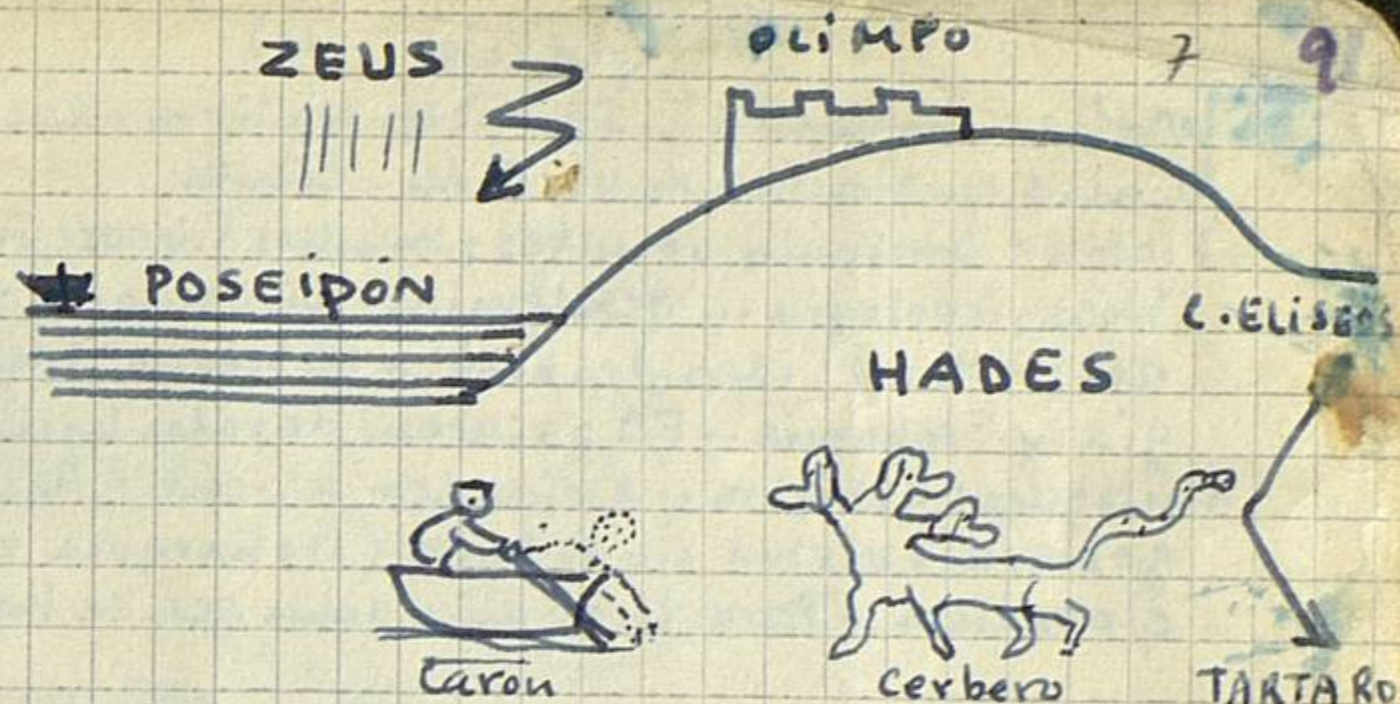 OLiMPO
7 9
ZEUS
POSEiDÓN
C. ELiSEOS
HADES
Carón
Cerbero
TARTARO